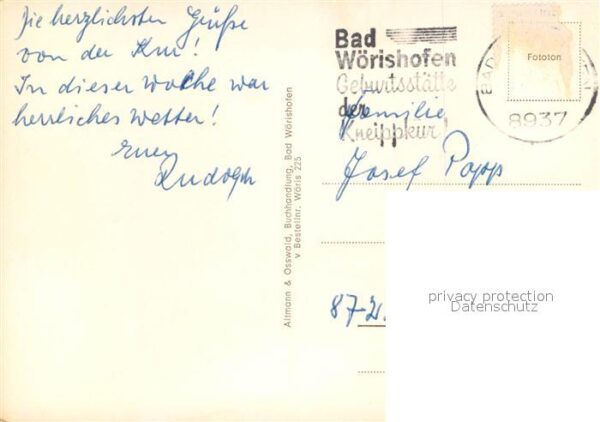 Die herzlichsten Grüße
von der Kur!
In dieser woche war
herrliches Wetter!
Euer
Rudolph
Altmann & Osswald, Buchhandlung, Bad Wörishofen
v Bestellnr. Wöris 225
Bad
Wörishofen
Geburtsstätte
der
Kneippkur!
BAD
8937
Fototon
Familie
Josef Popp
87-21.
privacy protection
Datenschutz